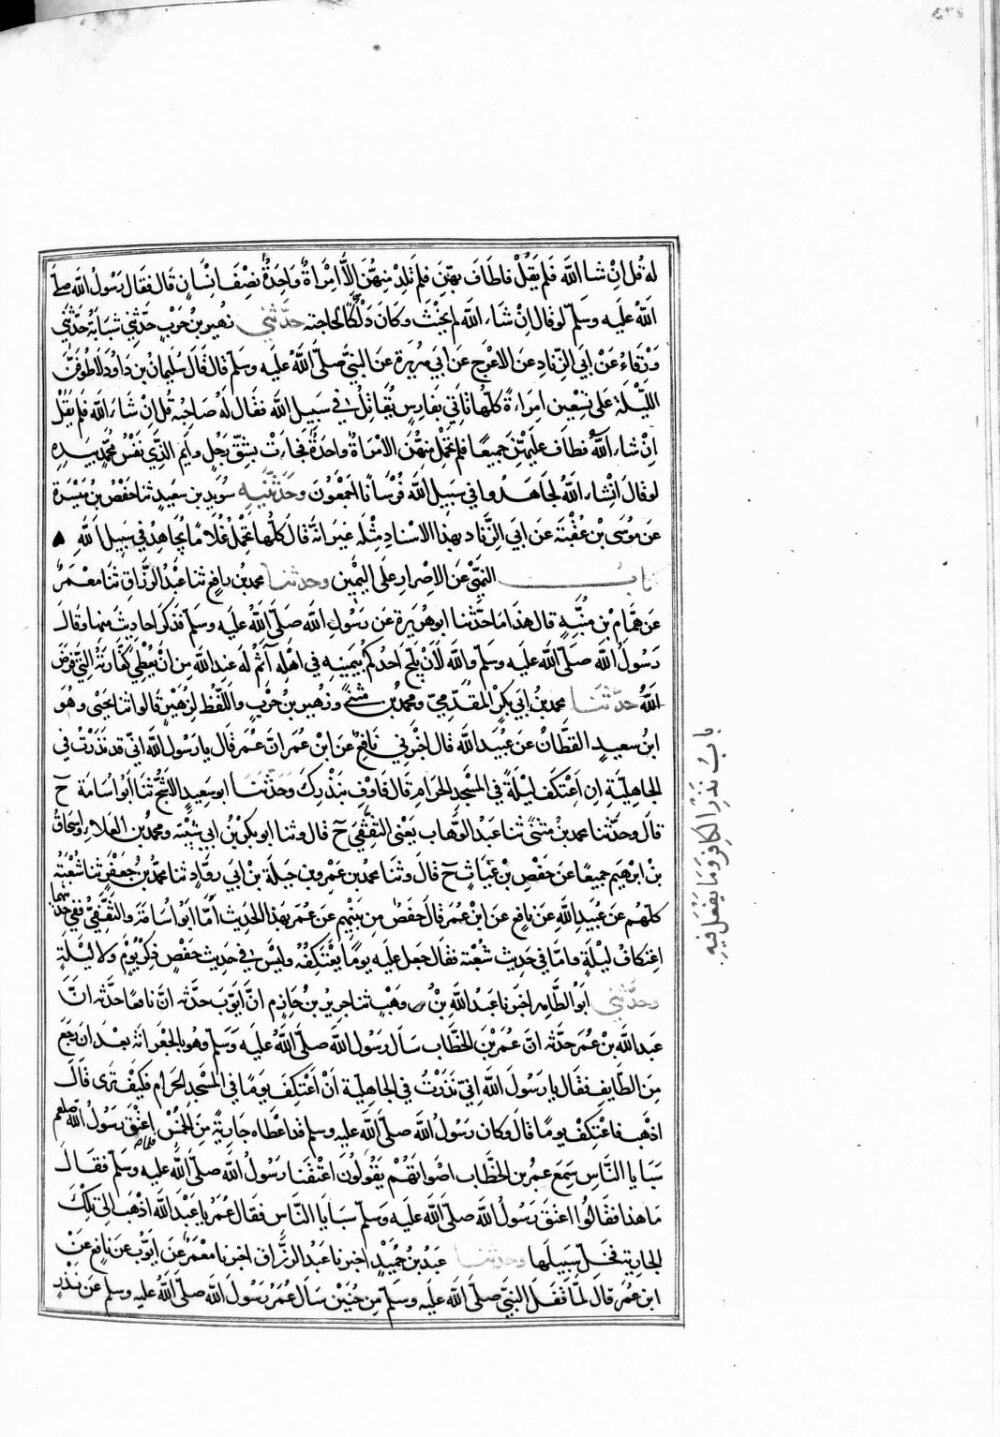 له قل ان شا الله فلم يقل فاطاف بهن فلم تلد منهن الا امراة واحدة نصف انسان قال فقال رسول الله صلى
الله عليه وسلم لو قال ان شاء الله لم يحنث وكان دركا لحاجته حدثني زهير بن حرب حدثني شبابة حدثني
ورقاء عن ابي الزناد عن الاعرج عن ابي هريرة عن النبي صلى الله عليه وسلم قال قال سليمان بن داود لاطوفن
الليلة على تسعين امراة كلها تاتي بفارس يقاتل في سبيل الله فقال له صاحبه قل ان شاء الله فلم يقل
ان شاء الله فطاف عليهن جميعا فلم تحمل منهن الا امراة واحدة فجاءت بشق رجل وايم الذي نفس محمد بيده
لو قال انشاء الله لجاهدوا في سبيل الله فرسانا اجمعون وحدثنيه سويد بن سعيد ثنا حفص بن ميسرة
عن موسى بن عقبة عن ابي الزناد بهذا الاسناد مثله غير انه قال كلها تحمل غلاما يجاهد في سبيل الله
باب النهي عن الاصرار على اليمين وحدثنا محمد بن رافع ثنا عبد الرزاق ثنا معمر
عن همام بن منبه قال هذا ما حدثنا ابو هريرة عن رسول الله صلى الله عليه وسلم فذكر احاديث منها وقال
رسول الله صلى الله عليه وسلم والله لان يلج احدكم بيمينه في اهله آثم له عند الله من ان يعطي كفارته التي فرض
الله حدثنا محمد بن ابي بكر المقدمي ومحمد بن مثنى وزهير بن حرب واللفظ لزهير قالوا ثنا يحيى وهو
ابن سعيد القطان عن عبيد الله قال اخبرني نافع عن ابن عمر ان عمر قال يا رسول الله اني قد نذرت في
الجاهلية ان اعتكف ليلة في المسجد الحرام قال فاوف بنذرك وحدثنا ابو سعيد الاشج ثنا ابو اسامة ح
قال وحدثنا محمد بن مثنى ثنا عبد الوهاب يعنى الثقفي ح قال وثنا ابو بكر بن ابي شيبة ومحمد بن العلاء واسحاق
بن ابرهيم جميعا عن حفص بن غياث ح قال وثنا محمد بن عمرو بن جبلة بن ابي رواد ثنا محمد بن جعفر ثنا شعبة
كلهم عن عبيد الله عن نافع عن ابن عمر قال حفص من بينهم عن عمر بهذا الحديث اما ابو اسامة والثقفي ففي حديثهما
اعتكاف ليلة واما في حديث شعبة فقال جعل عليه يوما يعتكفه وليس في حديث حفص ذكر يوم ولا ليلة
وحدثني ابو الطاهر اخبرنا عبد الله بن وهب ثنا جرير بن حازم ان ايوب حدثه ان نافعا حدثه ان
عبد الله بن عمر حدثه ان عمر بن الخطاب سال رسول الله صلى الله عليه وسلم وهو بالجعرانة بعد ان رجع
من الطايف فقال يا رسول الله اني نذرت في الجاهلية ان اعتكف يوما في المسجد الحرام فكيف ترى قال
اذهب فاعتكف يوما قال وكان رسول الله صلى الله عليه وسلم قد اعطاه جارية من الخمس فلما اعتق رسول الله صلعم
سبايا الناس سمع عمر بن الخطاب اصواتهم يقولون اعتقنا رسول الله صلى الله عليه وسلم فقال
ما هذا فقالوا اعتق رسول الله صلى الله عليه وسلم سبايا الناس فقال عمر يا عبد الله اذهب الى تلك
الجارية فخل سبيلها وحدثنا عبد بن حميد اخبرنا عبد الرزاق اخبرنا معمر عن ايوب عن نافع عن
ابن عمر قال لما قفل النبي صلى الله عليه وسلم من حنين سال عمر رسول الله صلى الله عليه وسلم عن نذر
باب نذر الكافر وما يفعل فيه